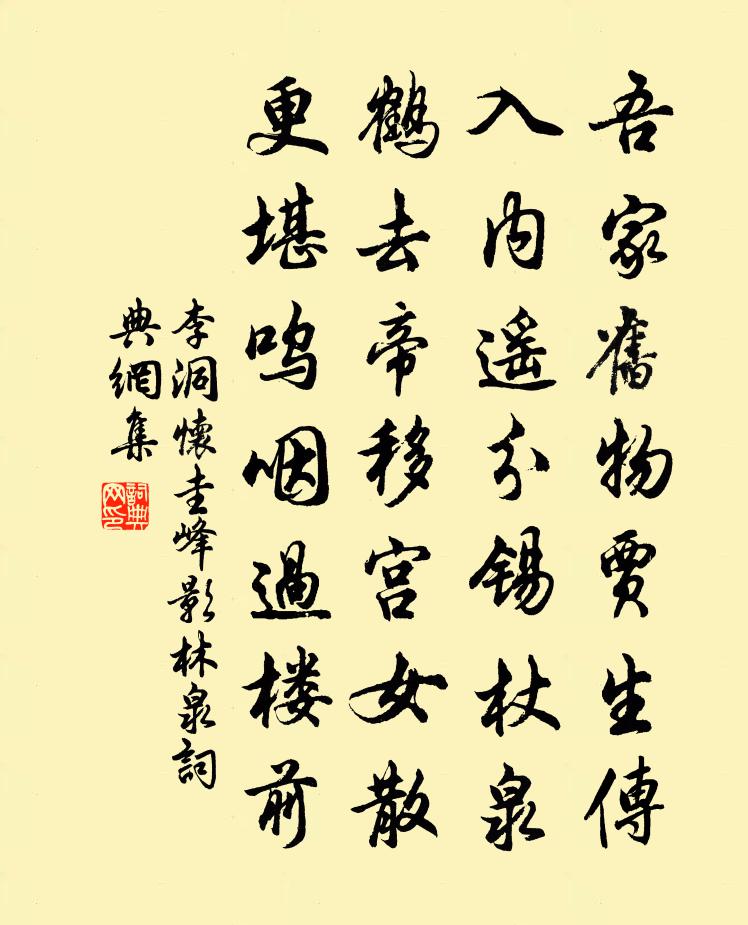 吾家舊物賈生傳
入內遥分錫杖泉
鶴去帝移宮女散
更堪鸣咽過楼前
李洞懷圭峰影林泉詞
典網集
詞典網印